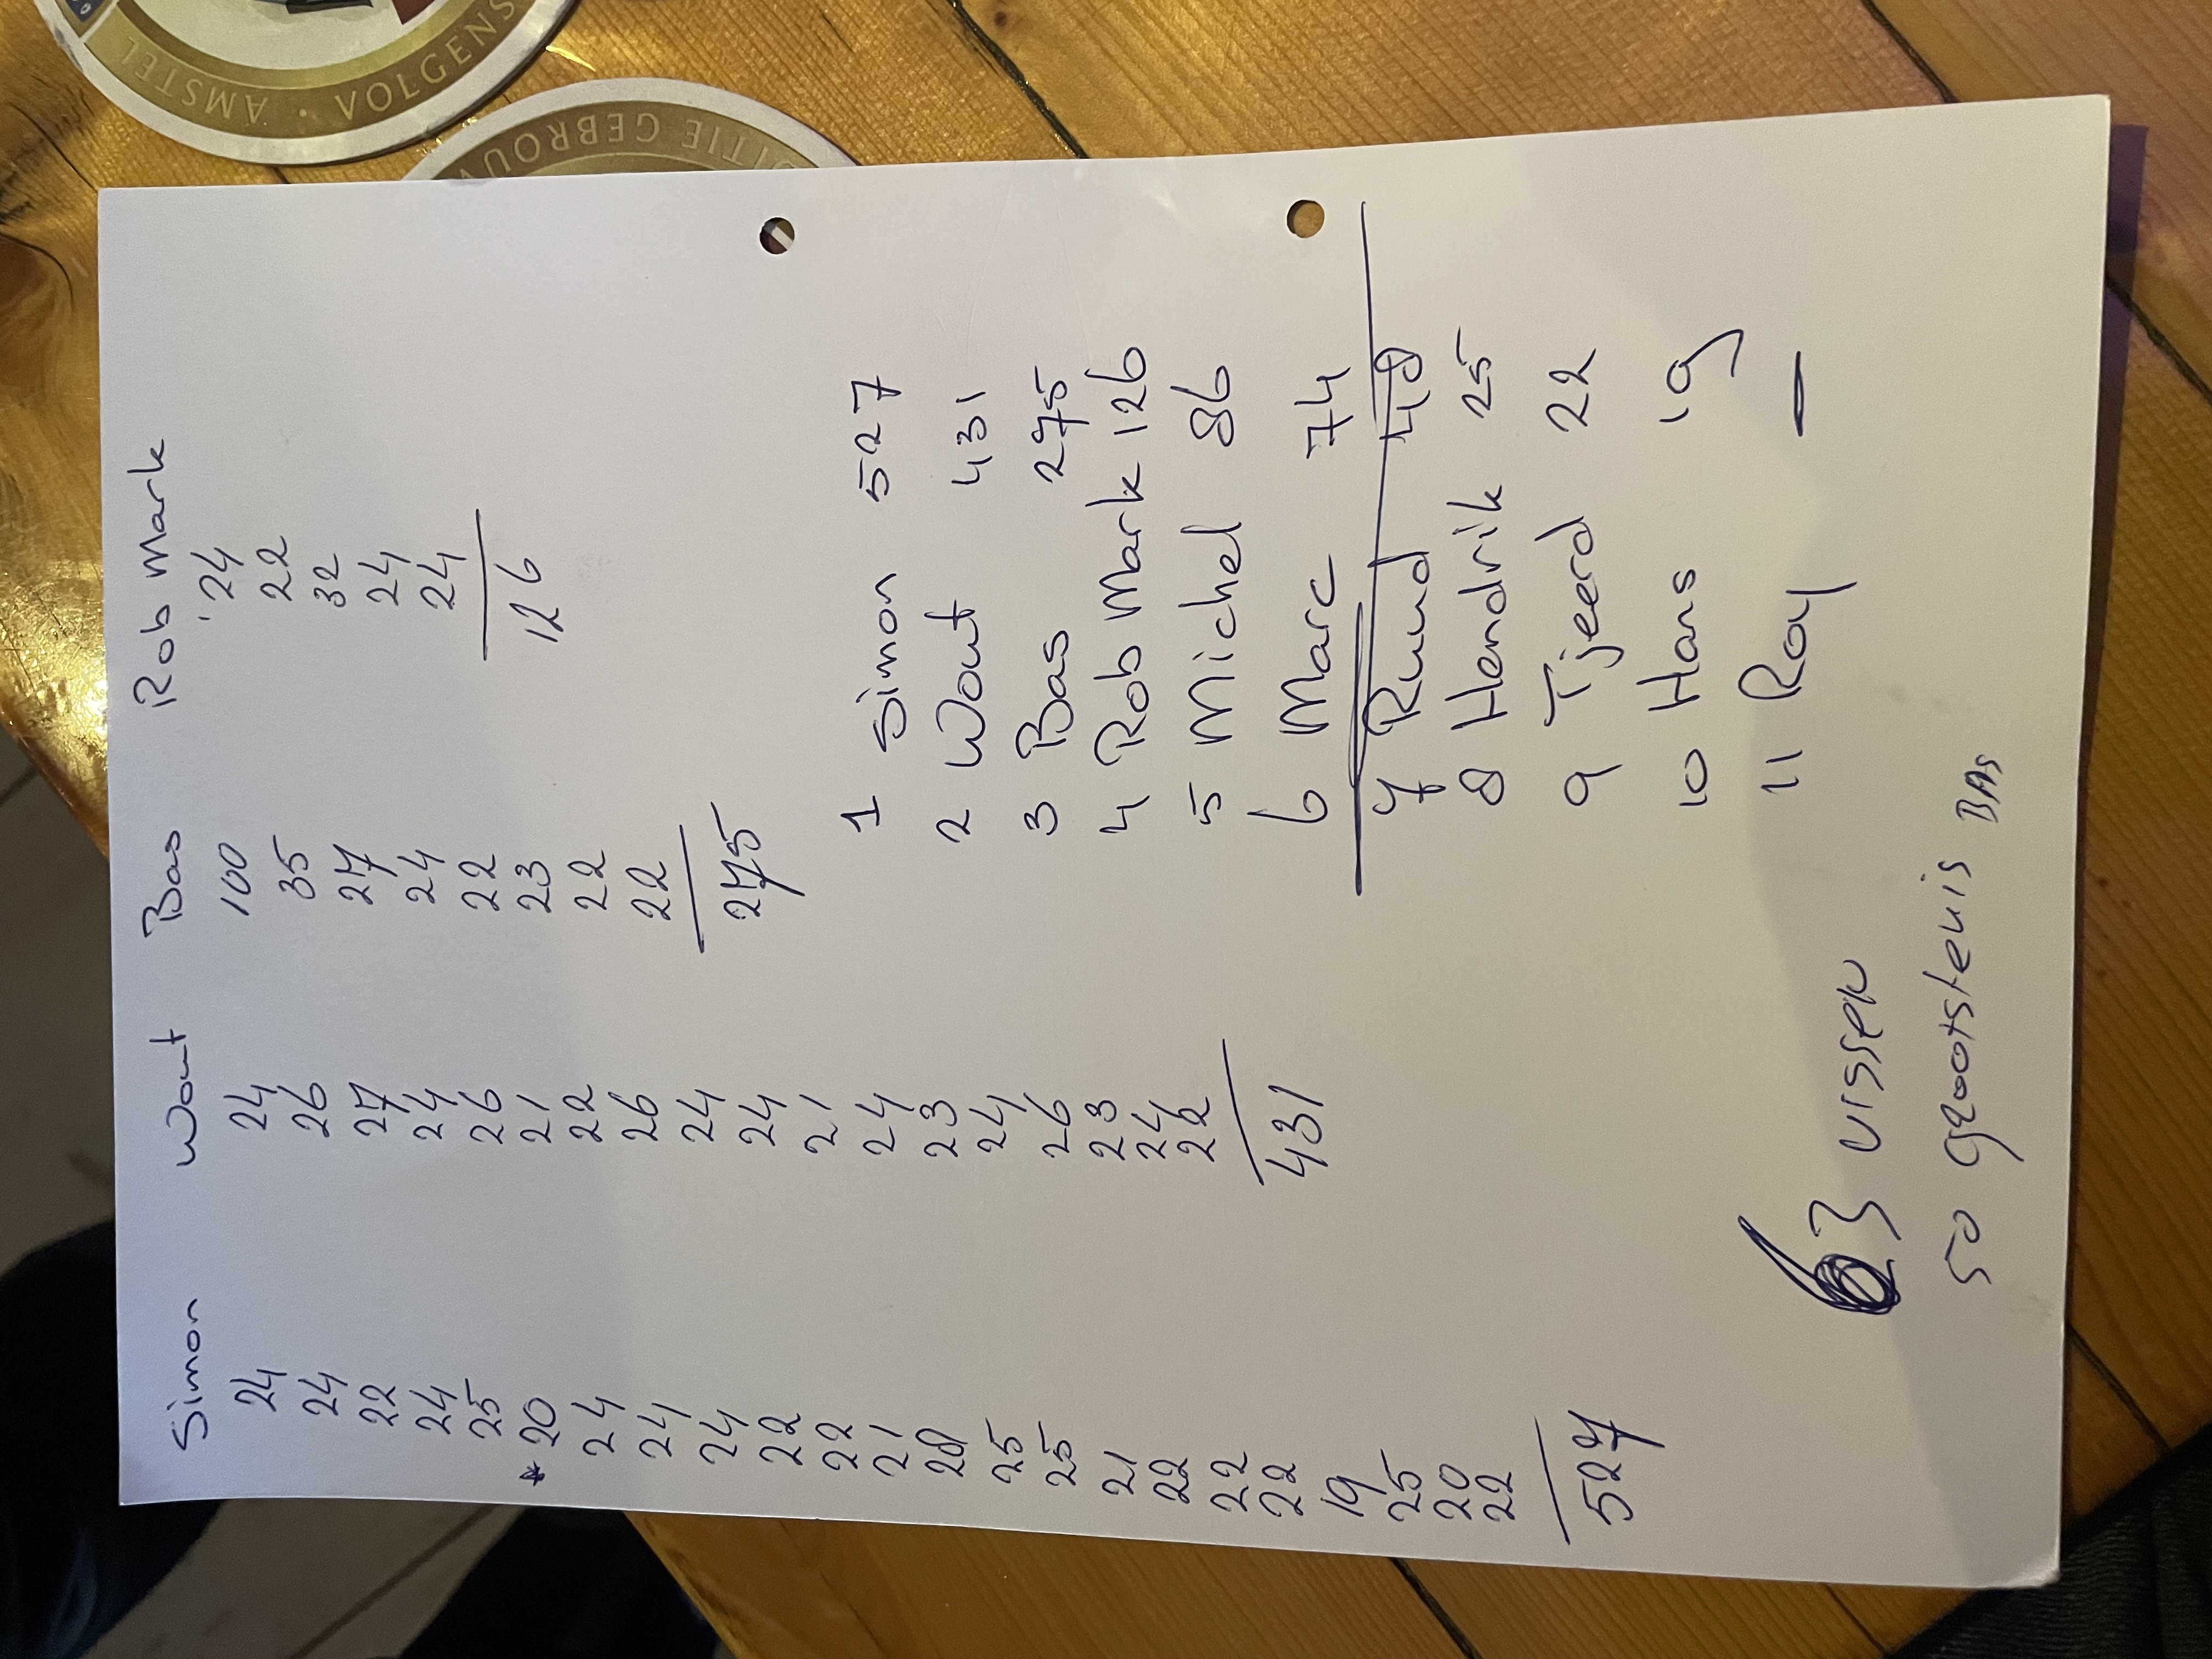 Simon
24
24
22
24
25
* 20
24
24
24
22
22
21
28
25
25
21
22
22
22
19
25
20
22
527
Wout
24
26
27
24
26
21
22
26
24
24
21
24
23
24
26
23
24
22
431
Bas
100
35
27
24
22
23
22
22
275
Rob Mark
24
22
32
24
24
126
1 Simon 527
2 Wout 431
3 Bas 275
4 Rob Mark 126
5 Michel 86
6 Marc 74
7 Ruud 48
8 Hendrik 25
9 Tjeerd 22
10 Hans 19
11 Roy —
63 vissen
50 grootste vis BAS
AMSTEL • VOLGENS
ITIE GEBROUW